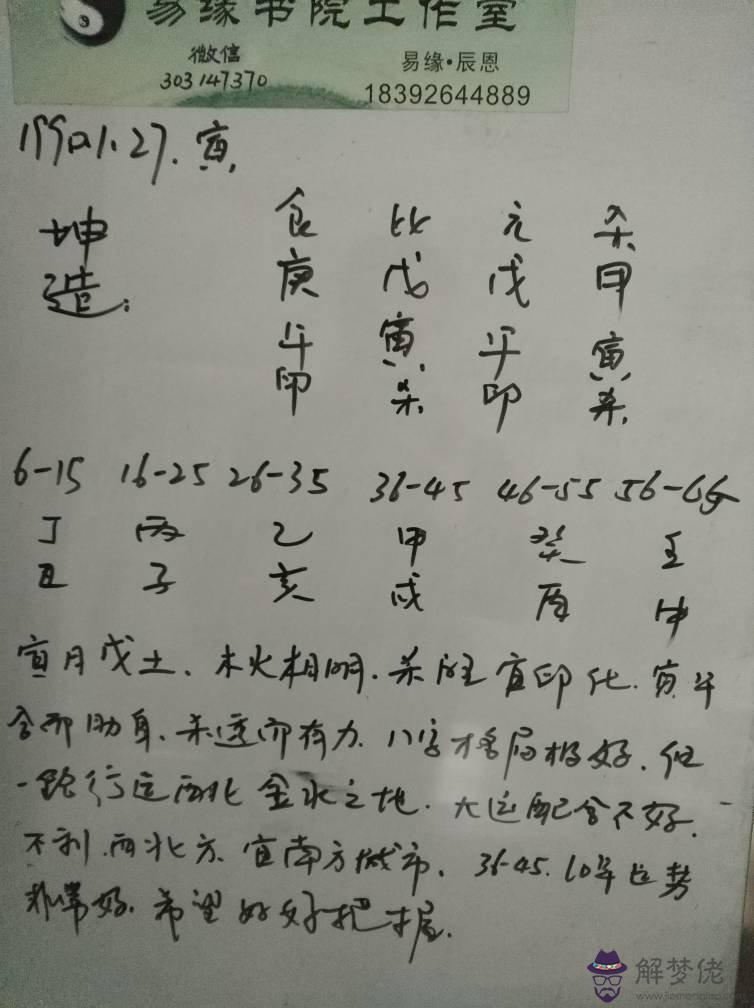 易缘书院工作室
微信
303147370
易缘·辰恩
18392644889
1990.1.27.寅.
坤造:
食 比 元 杀
庚 戊 戊 甲
午 寅 午 寅
印 杀 印 杀
6-15 16-25 26-35 36-45 46-55 56-65
丁 丙 乙 甲 癸 壬
丑 子 亥 戌 酉 申
寅月戊土.木火相明.杀旺宜印化.寅午
合而助身.杀透而有力.八字格局极好.但
一路行运西北金水之地.大运配合不好.
不利西北方.宜南方城市.36-45.10年运势
非常好.希望好好把握.
解梦佬
www.jiemenglao.com